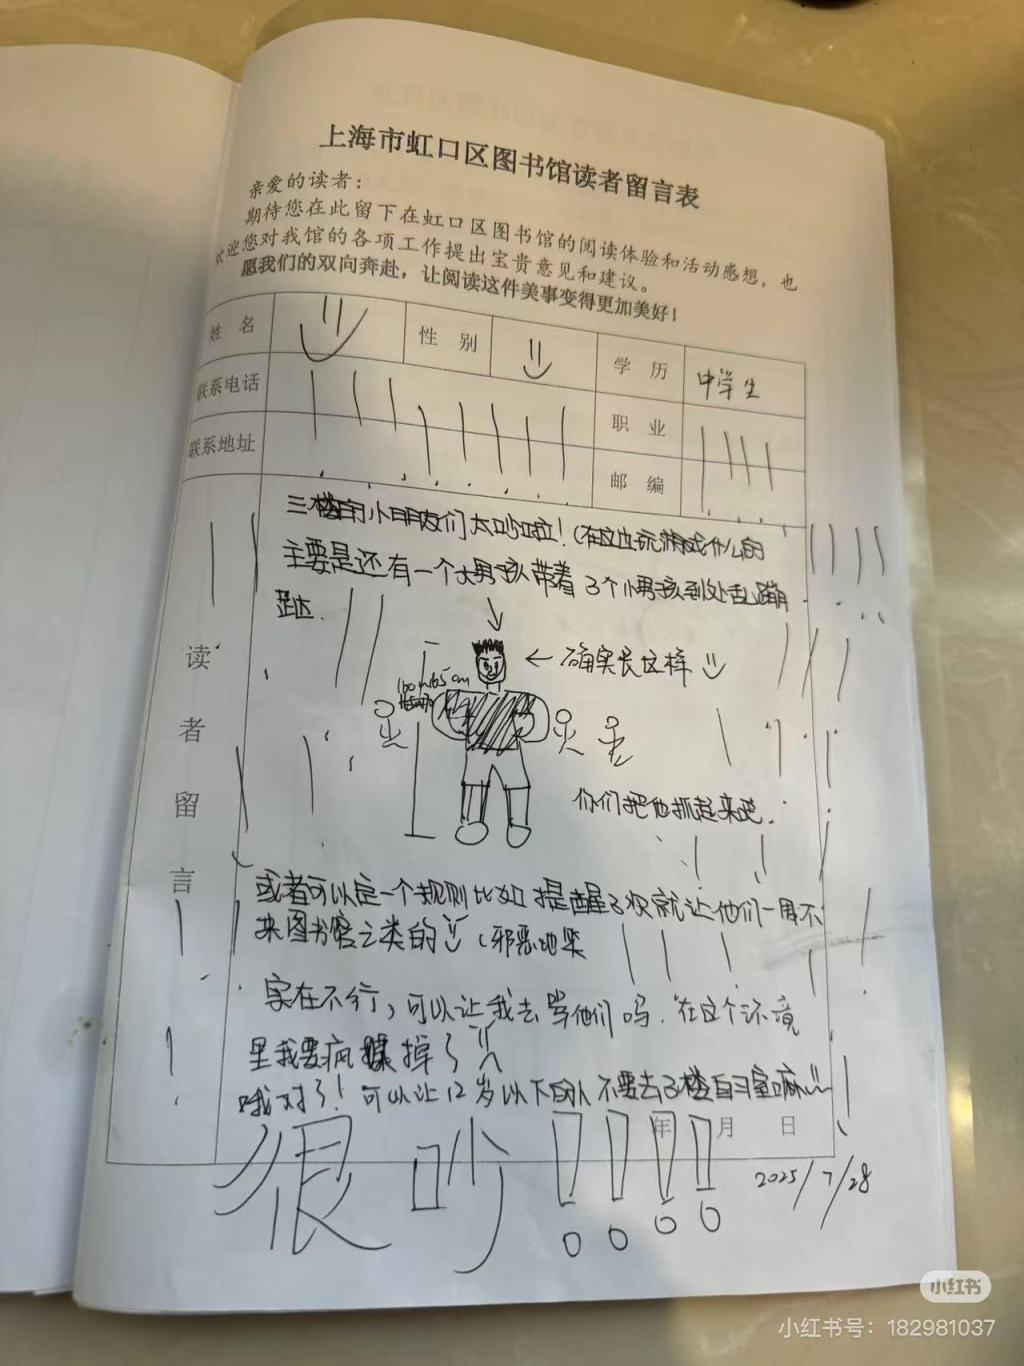 上海市虹口区图书馆读者留言表
亲爱的读者：
期待您在此留下在虹口区图书馆的阅读体验和活动感想，也
欢迎您对我馆的各项工作提出宝贵意见和建议。
愿我们的双向奔赴，让阅读这件美事变得更加美好！
姓 名
性 别
学 历 中学生
联系电话
职 业
联系地址
邮 编
读者留言
三楼的小朋友们太吵啦！(在这边玩游戏什么的
主要是还有一个大男孩带着3个小男孩到处乱蹦
跶.
← 确实长这样
165cm
你们把他抓起来吧.
或者可以定一个规则比如提醒3次就让他们一周不
来图书馆之类的 (邪恶地笑
实在不行，可以让我去学他们吗.在这个环境
里我要疯掉了
哦对了！可以让12岁以下的人不要去3楼自习室嘛
年 月 日
很吵！！！！
2025/7/28
小红书
小红书号：182981037